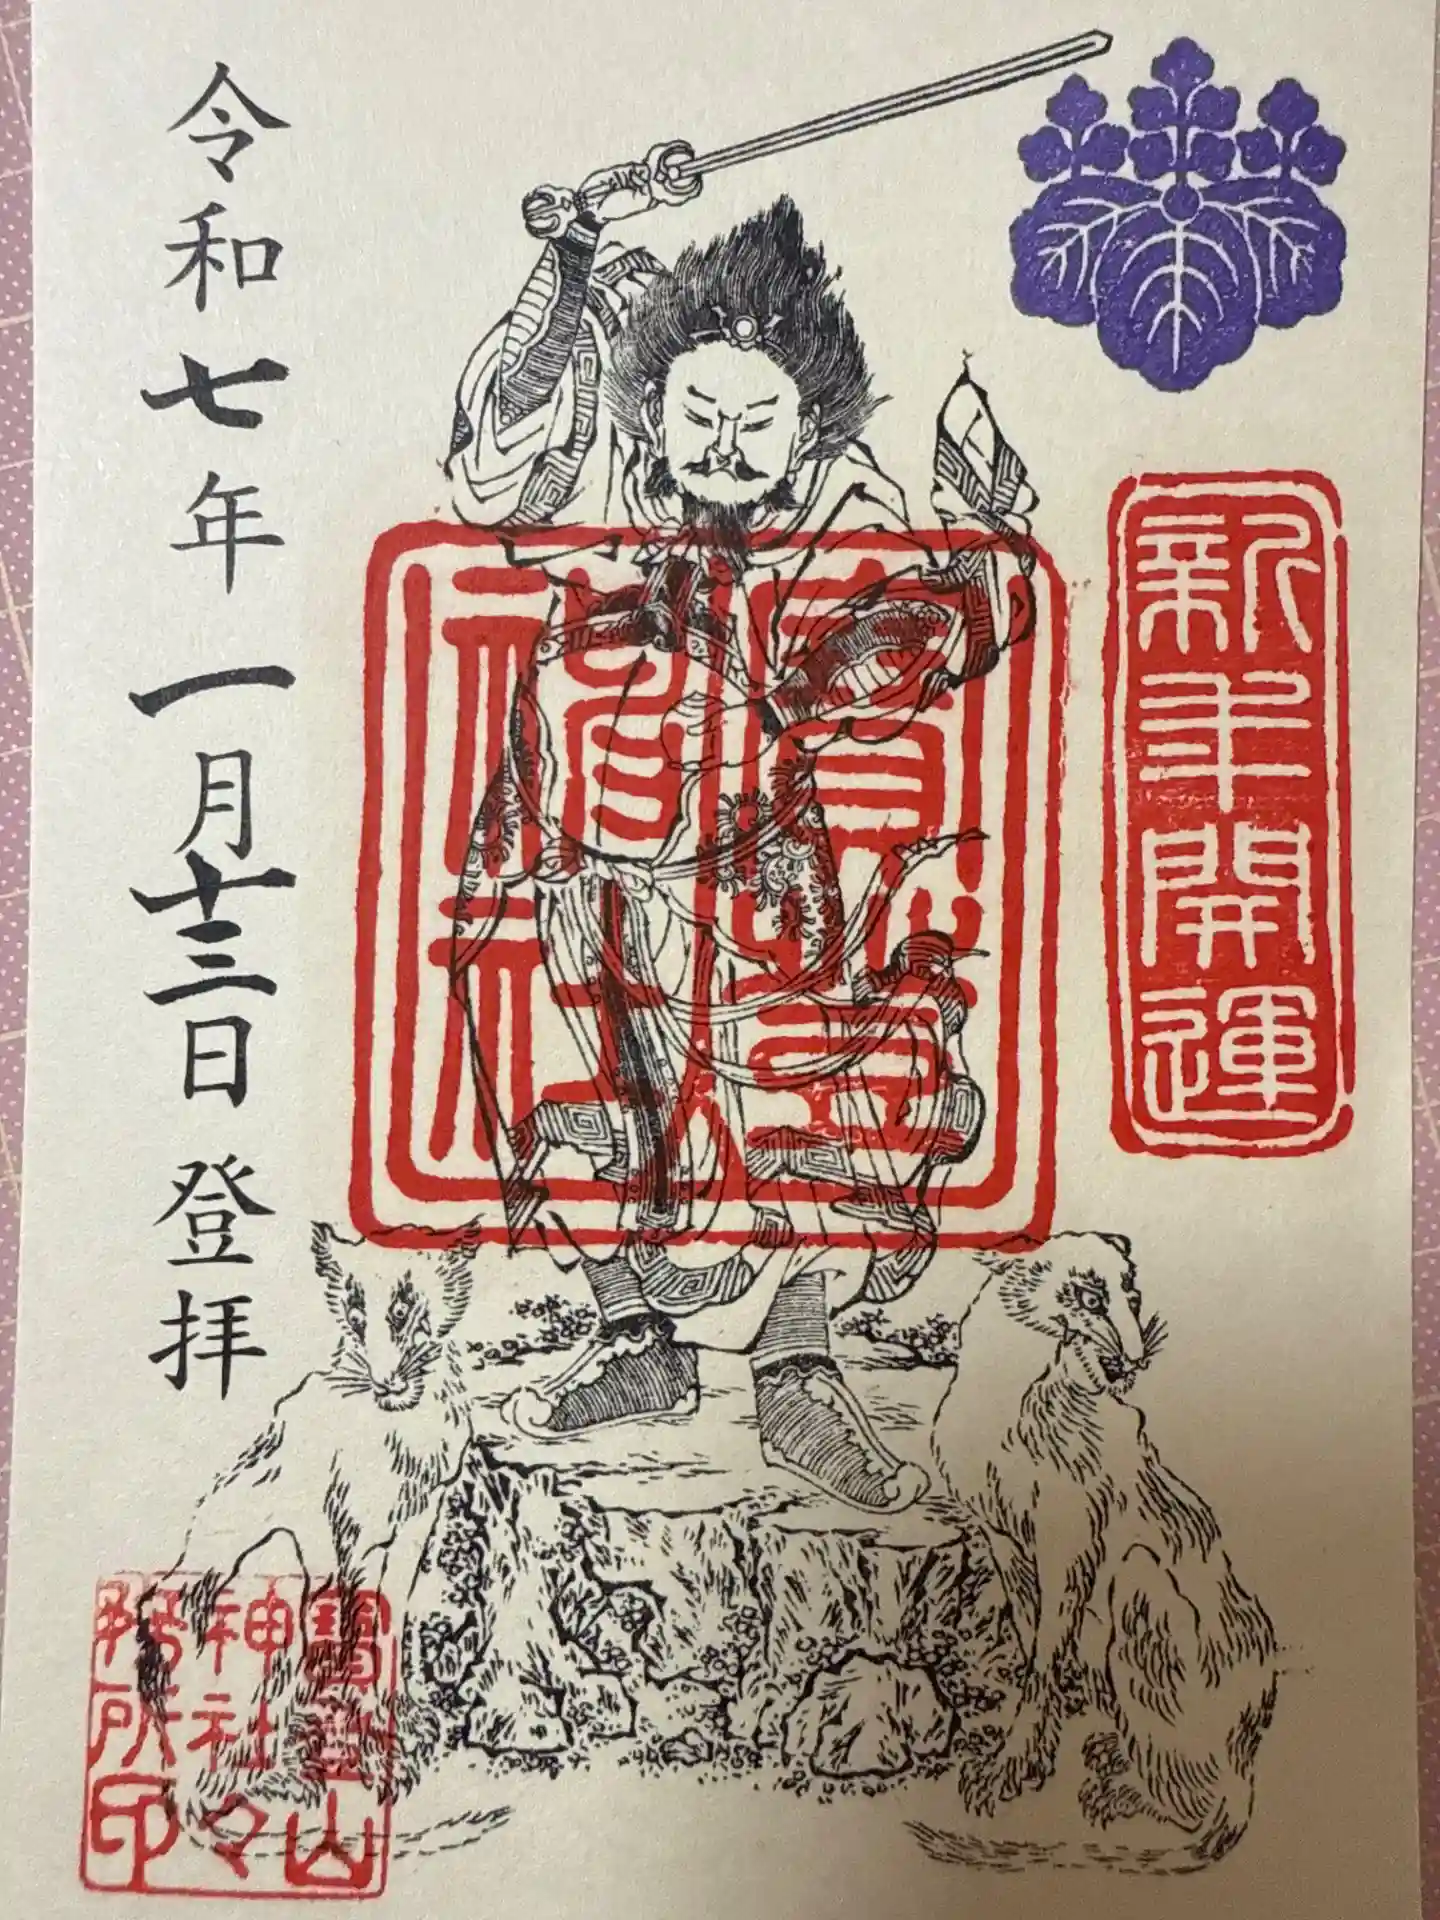 新年開運
寶登山
神社
令和七年一月十三日登拝
寶登山
神社々
務所印